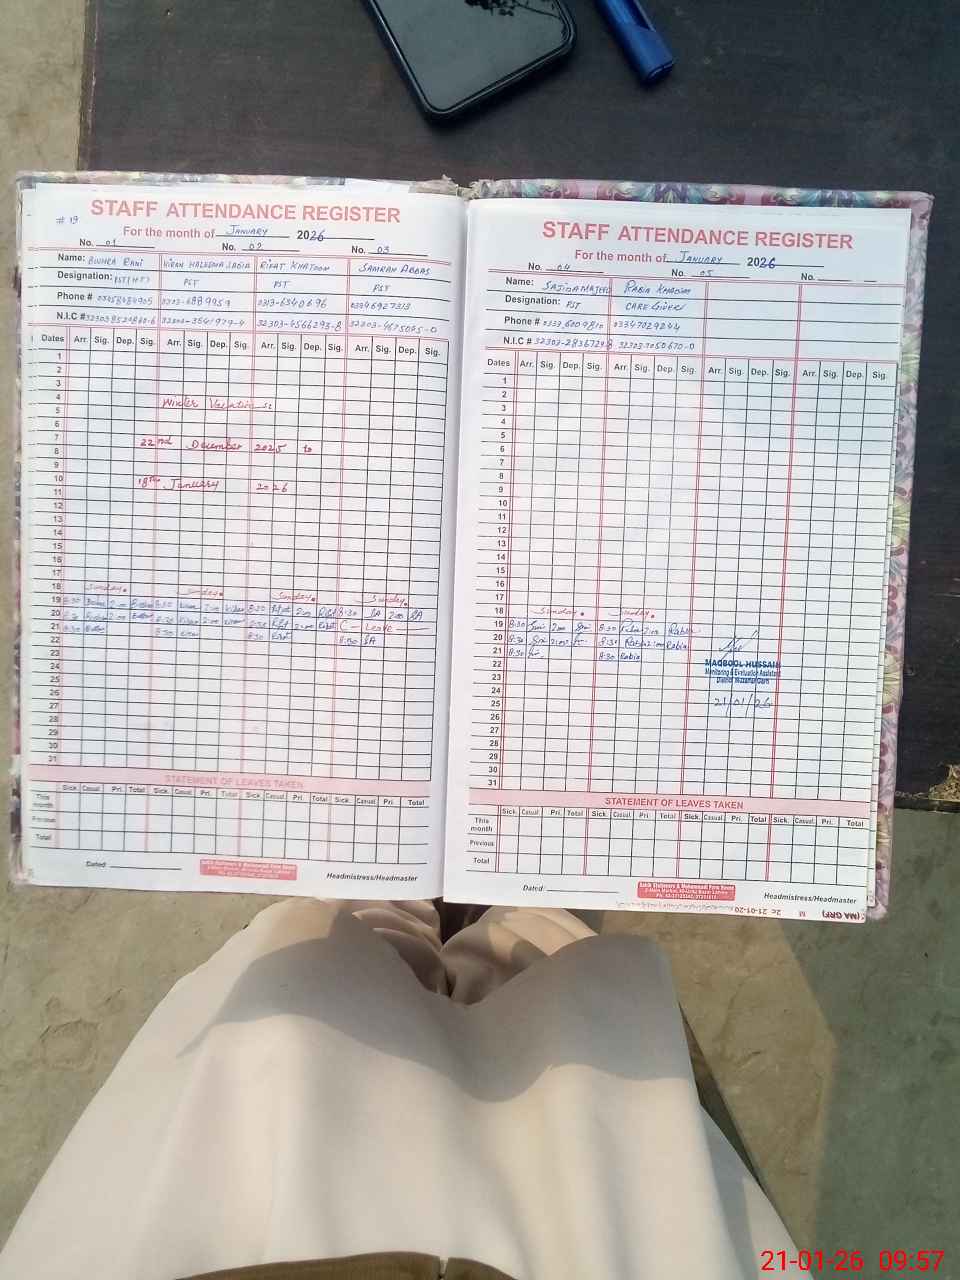 # 19
STAFF ATTENDANCE REGISTER
For the month of January 2026
No. 01 No. 02 No. 03
Name: BUSHRA RANI KIRAN HALEEMA SADIA RIFAT KHATOON SAMRAH ABBAS
Designation: PST(HT) PST PST PST
Phone # 0313-6340696 03346927313
N.I.C # 32303-4566295-8 32303-4675045-0
Dates Arr. Sig. Dep. Sig. Arr. Sig. Dep. Sig. Arr. Sig. Dep. Sig. Arr. Sig. Dep. Sig.
1
2
3
4 Winter Vacations
5
6
7 22nd December 2025 to
8
9
10 18th January 2026
11
12
13
14
15
16
17
18 Sunday. Sunday. Sunday. Sunday.
19 8:30 Bushra 2:00 Bushra 8:30 Kiran 2:00 Kiran 8:30 Rifat 2:00 Rifat 8:30 SA 2:00 SA
20 8:30 Bushra 2:00 Bushra 8:30 Kiran 2:00 Kiran 8:30 Rifat 2:00 Rifat C - Leave
21 8:30 Bushra 8:30 Kiran 8:30 Rifat 8:30 SA
22
23
24
25
26
27
28
29
30
31
STATEMENT OF LEAVES TAKEN
Sick. Casual. Pri. Total Sick. Casual. Pri. Total Sick. Casual. Pri. Total Sick. Casual. Pri. Total
This month
Previous
Total
Dated:
Sahih Stationers & Muhammadi Form House
Headmistress/Headmaster
STAFF ATTENDANCE REGISTER
For the month of January 2026
No. 04 No. 05 No.
Name: SAJIDA MAJEED RABIA KHANUM
Designation: PST CARE Giver
Phone # 0333,6009810 03347029244
N.I.C # 32303-2836729-8 32303-7050670-0
Dates Arr. Sig. Dep. Sig. Arr. Sig. Dep. Sig. Arr. Sig. Dep. Sig. Arr. Sig. Dep. Sig.
1
2
3
4
5
6
7
8
9
10
11
12
13
14
15
16
17
18 Sunday. Sunday.
19 8:30 2:00 8:30 Rabia 2:00 Rabia
20 8:30 2:00 8:30 Rabia 2:00 Rabia
21 8:30 8:30 Rabia
22
23
24
25
26
27
28
29
30
31
MAQBOOL HUSSAIN
Monitoring & Evaluation Assistant
District Muzaffar Garh
21/01/26
STATEMENT OF LEAVES TAKEN
Sick. Casual. Pri. Total Sick. Casual. Pri. Total Sick. Casual. Pri. Total Sick. Casual. Pri. Total
This month
Previous
Total
Dated:
Sahih Stationers & Muhammadi Form House
Headmistress/Headmaster
21-01-26 09:57